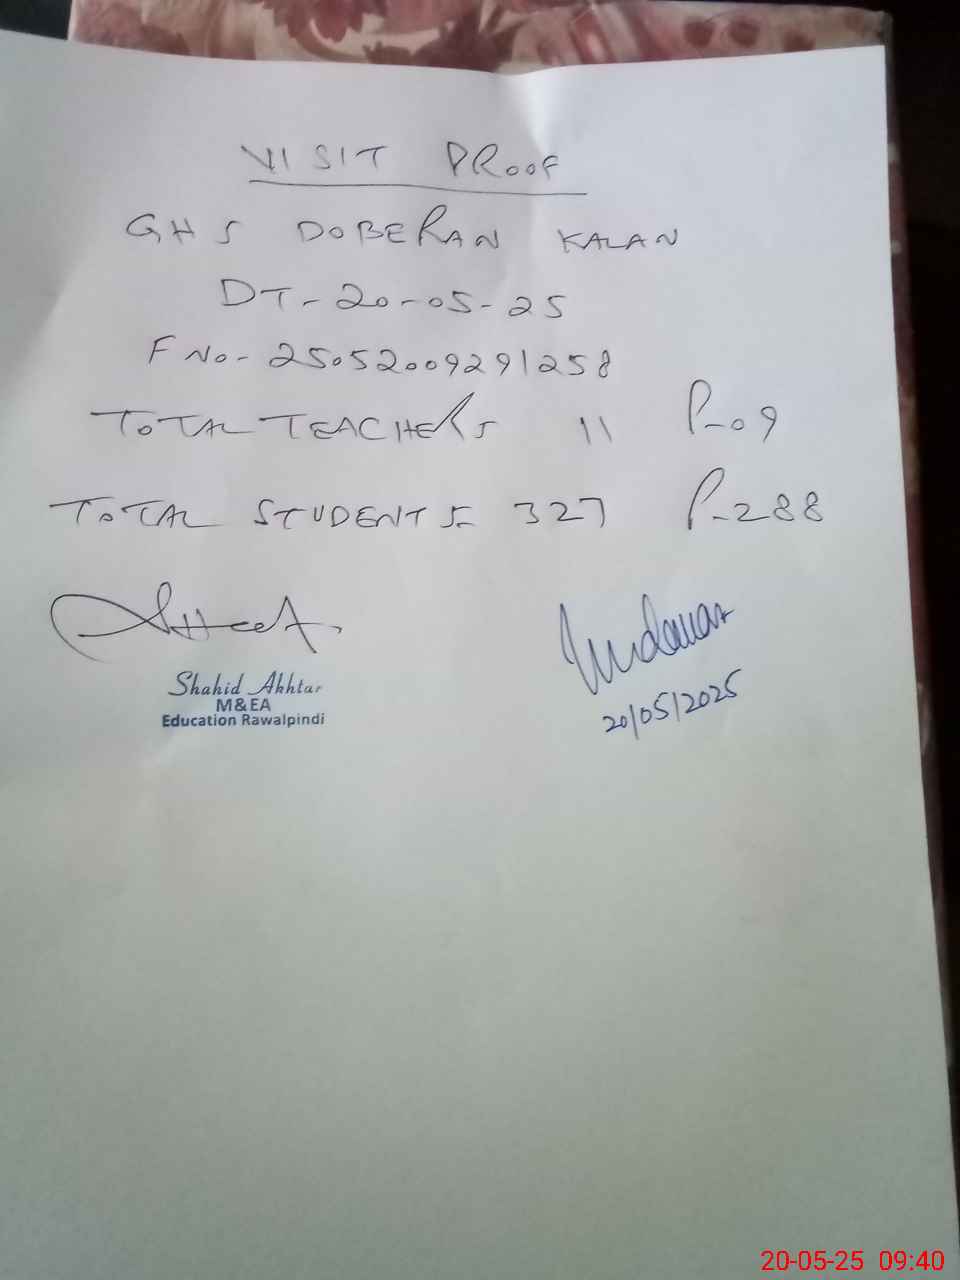 VISIT PROOF
GHS DOBERAN KALAN
DT-20-05-25
F No- 25052009291258
TOTAL TEACHERS 11 P-09
TOTAL STUDENTS 327 P-288
Shahid Akhtar
M&EA
Education Rawalpindi
20/05/2025
20-05-25 09:40